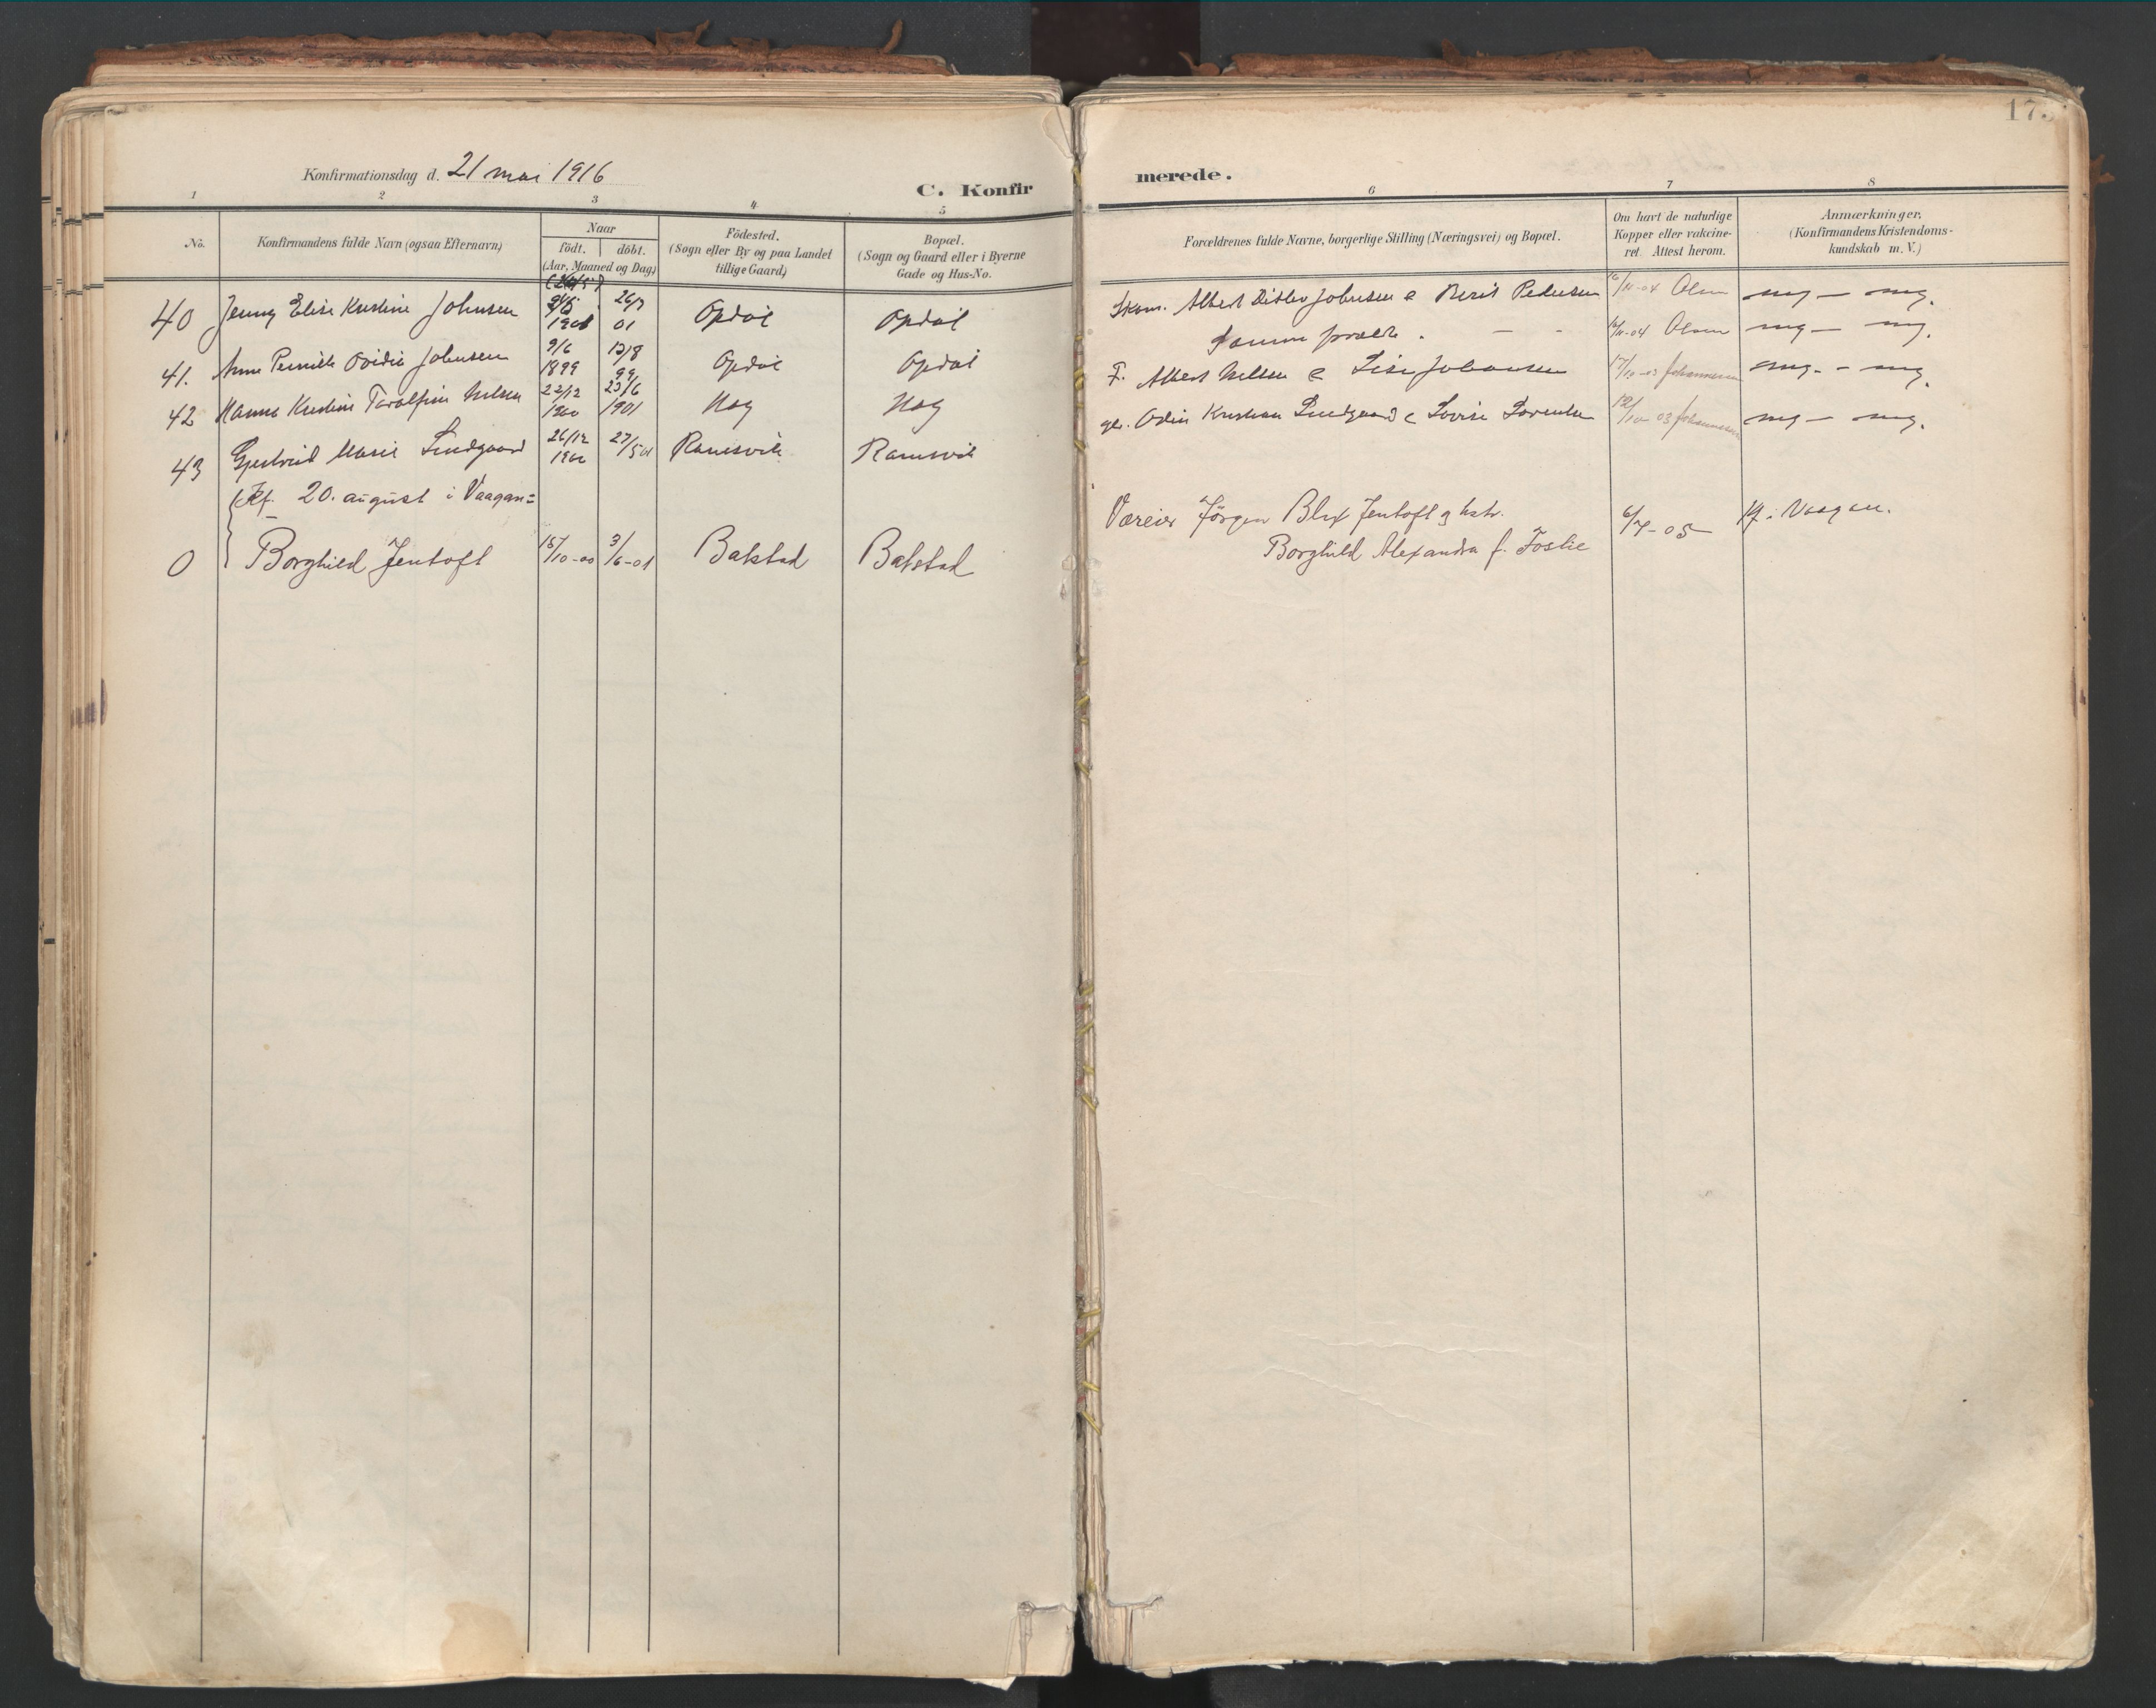 173
Konfirmationsdag d. 21 mai 1916
C. Konfirmerede.
1 2 3 4 5 6 7 8
No.
Konfirmandens fulde Navn (ogsaa Efternavn)
Naar
födt. döbt.
(Aar, Maaned og Dag)
Födested.
(Sogn eller By og paa Landet
tillige Gaard)
Bopæl.
(Sogn og Gaard eller i Byerne
Gade og Hus-No.
Forældrenes fulde Navne, borgerlige Stilling (Næringsvei) og Bopæl.
Om havt de naturlige
Kopper eller vakcine-
ret. Attest herom.
Anmærkninger.
(Konfirmandens Kristendoms-
kundskab m. V.)
40 Jenny Elise Kristine Johnsen 1901 26/7 01 Opdøl Opdøl Albert Ditlev Johnsen e Berit Pedersen /11-04 Olsen mg — mg.
41. Anna Pernille Ovidie Johnsen 9/6 1899 13/8 99 Opdøl Opdøl Samme forældre. — - 16/11-04 Olsen mg — mg.
42 Hanna Kristine Toralfine Nilsen 22/12 1900 23/6 1901 Hag Hag F. Albert Nilsen e Lise Johansen 17/10-03 Johannessen mg. - mg.
43 Gjertrud Marie Lindgaard 26/12 1900 27/5 01 Ramsvik Ramsvik Odin Kristian Lindgaard e Lovise Lorentsen /10 03 Johannessen mg — mg.
(Kf. 20. august i Vaagan=
0 Borghild Jentoft 15/10-00 3/6-01 Balstad Balstad Væreier Jörgen Blix Jentoft og hstr.
Borghild Alexandra f. Foslie 6/7-05 Kf. i Vaagan.